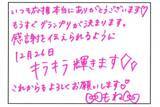 いつも応援本当にありがとうございます♡
もうすぐグランプリが決まります。
感謝を伝えられるように
12月24日
キラキラ輝きます♡
これからもよろしくお願いします♡
もね